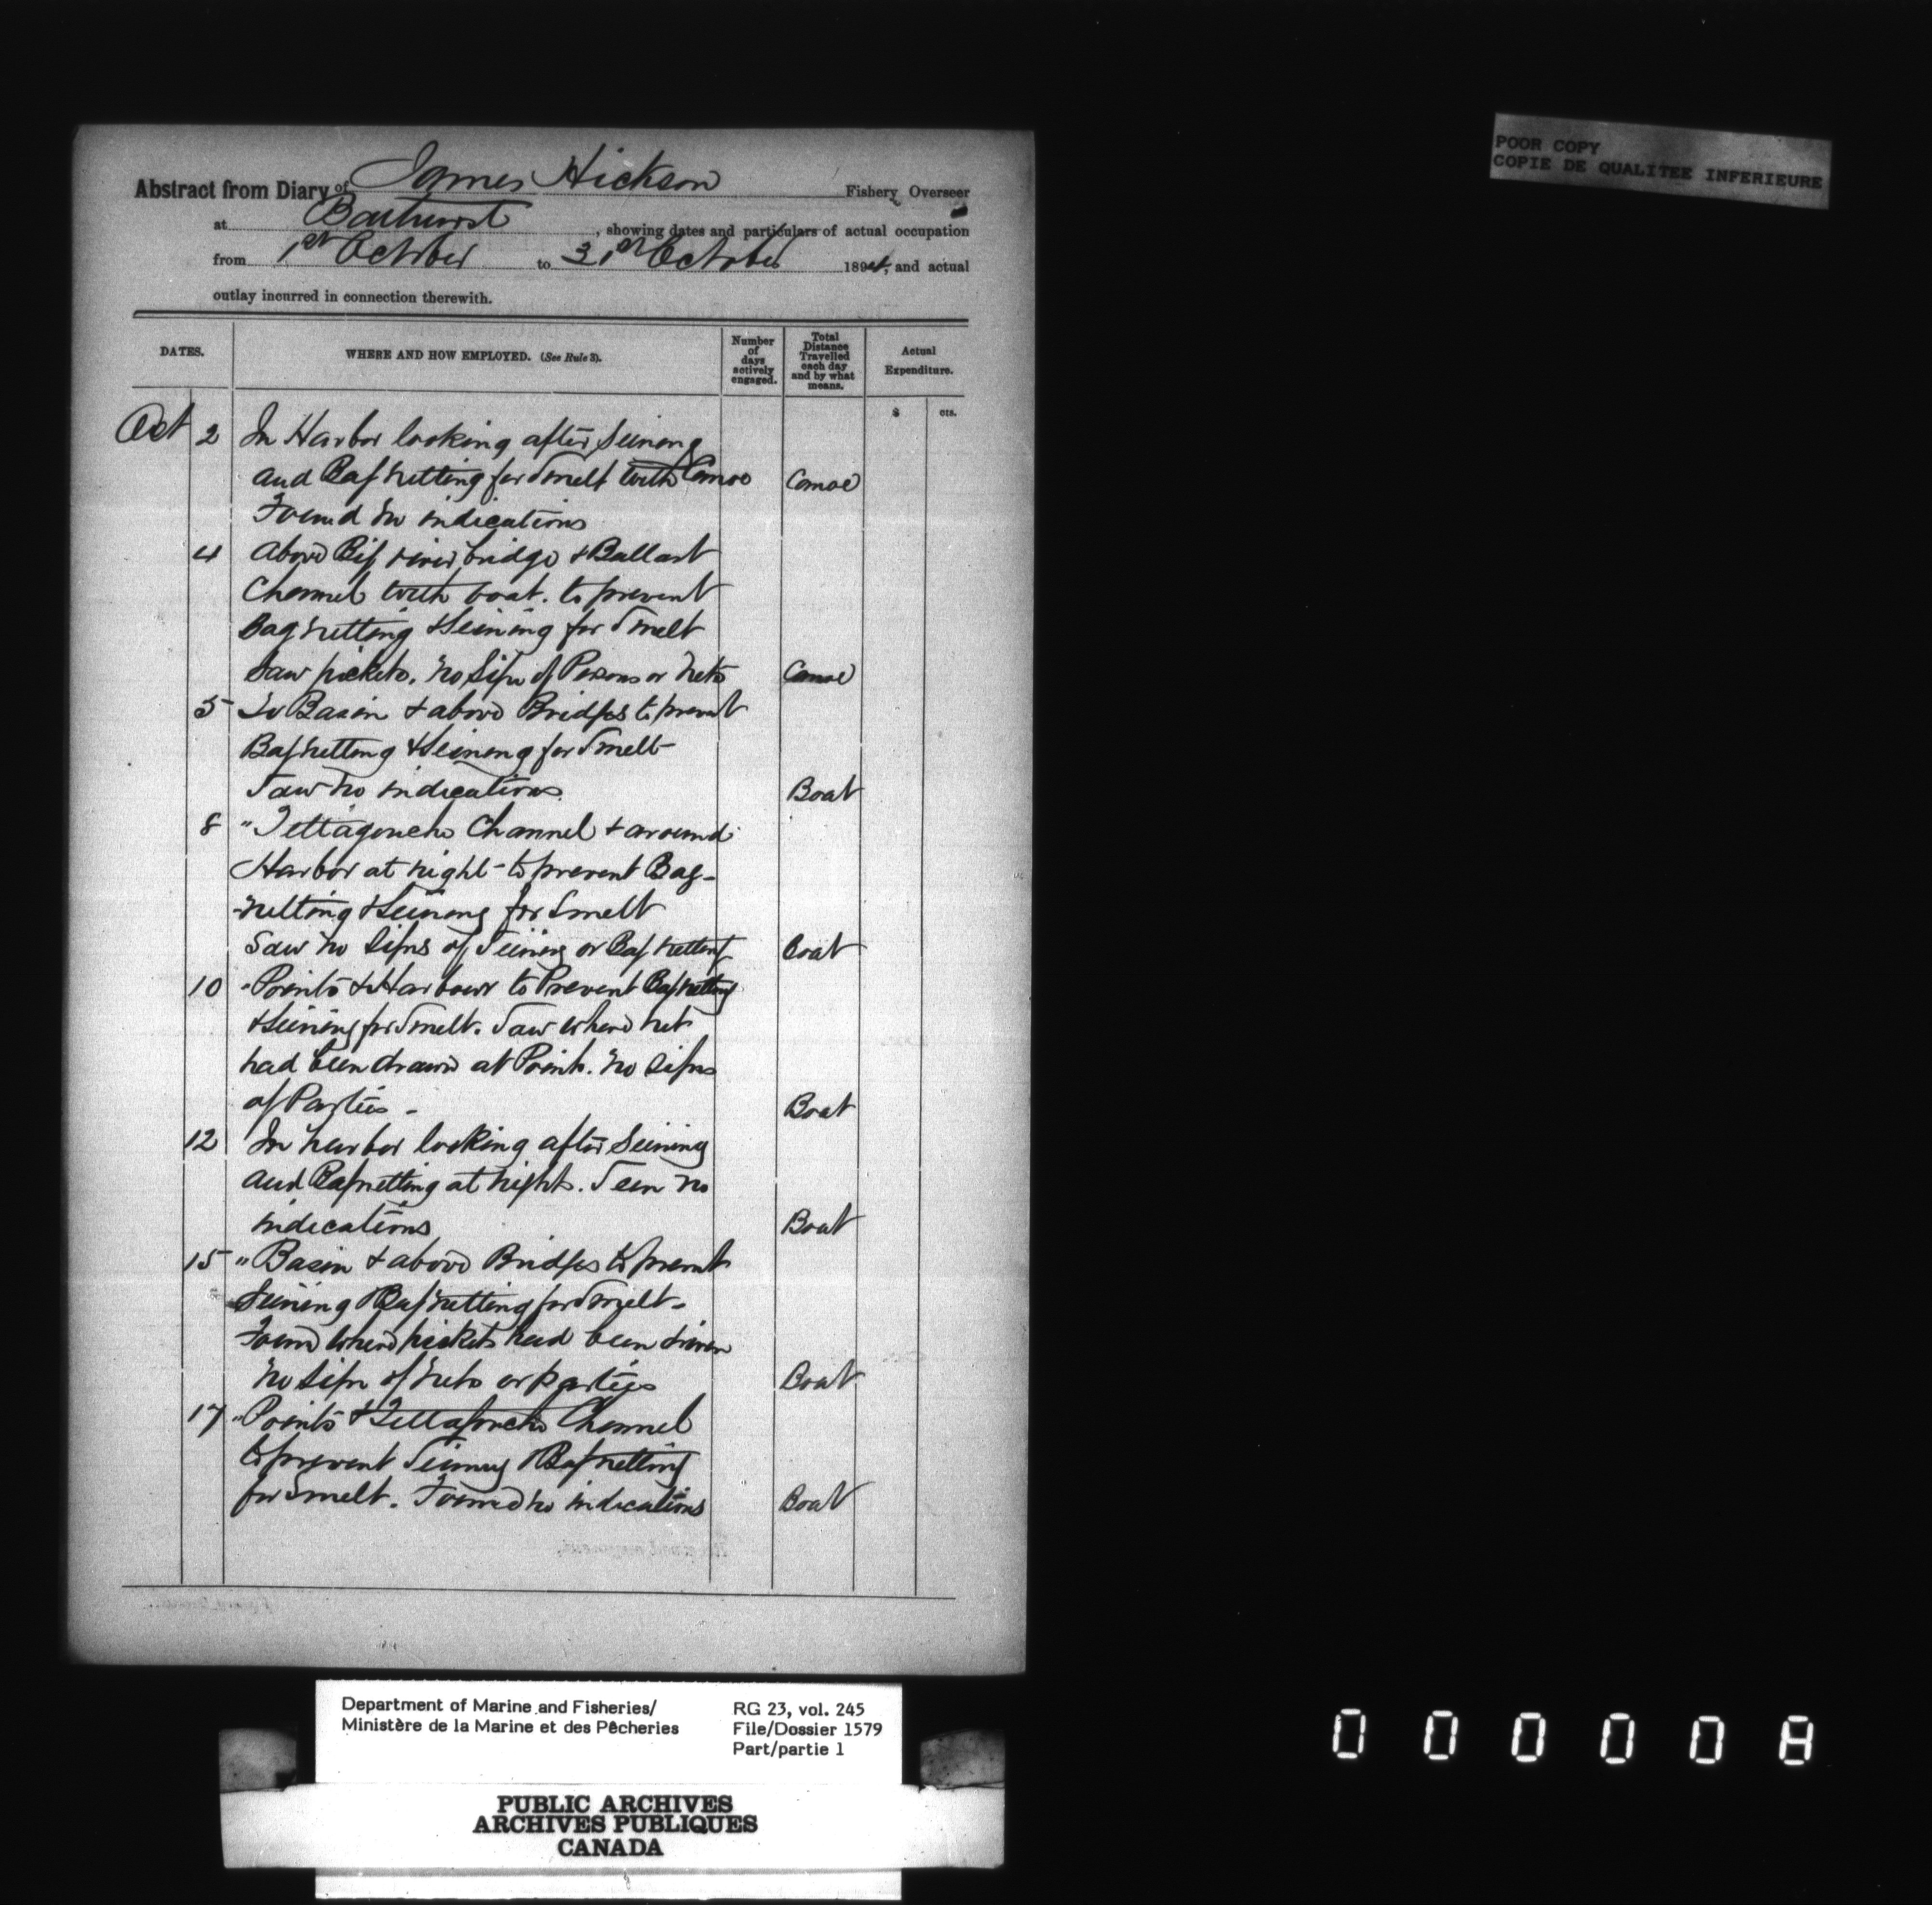 POOR COPY
COPIE DE QUALITEE INFERIEURE
Abstract from Diary of James Hickson Fishery Overseer
at Bathurst, showing dates and particulars of actual occupation
from 1st October to 31st October 1894, and actual
outlay incurred in connection therewith.
DATES. WHERE AND HOW EMPLOYED. (See Rule 3). Number of days actively engaged. Total Distance Travelled each day and by what means. Actual Expenditure.
$ cts.
Oct 2 In Harbor looking after Seining
and Bagnetting for Smelt with Canoe Canoe
Found no indications
4 Above Big river bridge & Ballast
Channel with boat. to prevent
Bagnetting & Seining for Smelt
Saw pickets. no Sign of Persons or nets Canoe
5 To Basin & above Bridges to prevent
Bagnetting & Seining for Smelt
Saw no indications Boat
8 " Tettagouche Channel & around
Harbor at night to prevent Bag-
netting & Seining for Smelt
Saw no Signs of Seining or Bagnetting Boat
10 " Points & Harbour to Prevent Bagnetting
& Seining for Smelt. Saw where net
had been drawn at Point. no signs
of Parties - Boat
12 In harbor looking after Seining
and Bagnetting at night. Seen no
indications Boat
15 " Basin & above Bridges to prevent
Seining & Bagnetting for Smelt-
Found where pickets had been driven
no sign of nets or parties Boat
17 " Points & Tettagouche Channel
to prevent Seining & Bagnetting
for Smelt. Found no indications Boat
Department of Marine and Fisheries/
Ministère de la Marine et des Pêcheries
RG 23, vol. 245
File/Dossier 1579
Part/partie 1
PUBLIC ARCHIVES
ARCHIVES PUBLIQUES
CANADA
000008